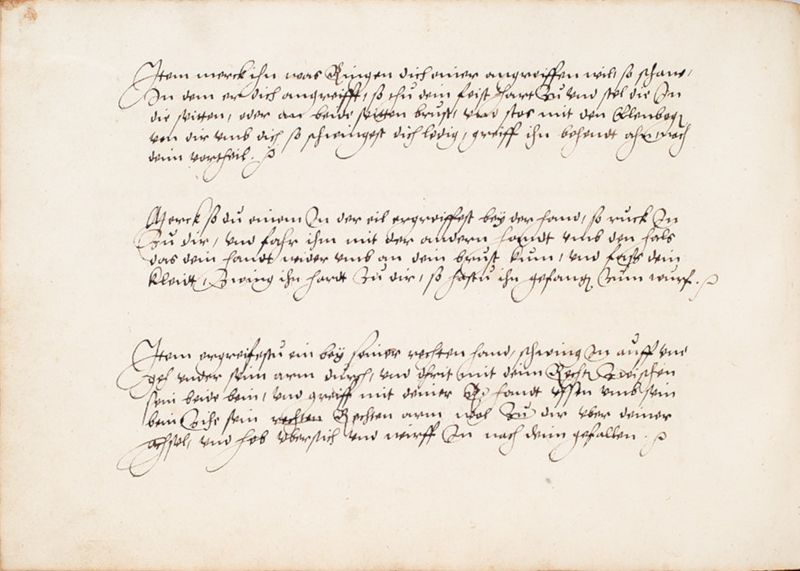 Item merck ihn was Ringen dich einer angreiffen will so schaw,
In dem er dich angreifft, so thu dein feist hart Zu und stos die In
die seitten, oder an beide seitten brust, und stos mit den Elenbogẽ
von dir umb dich, so schwingest dich ledig, greiff ihn behendt ahn nach
deim vortheil.
Merck so du einem In der eil ergreiffest bey der hand, so ruck In
Zu dir, und fahr ihm mit der andern handt umb den hals
das dein handt wider umb an dein brust kum, und fass dein
kleidt, Zwing ihn hardt Zu dir, so hastu ihn gefangẽ Zum wurf.
Item ergreifestu ein bey seiner rechten hand, schwing In auff und
gehe under sein arm durch, und trit mit deim Rechtẽ Zwischen
sein beide bein, und greiff mit deiner R handt ussen umb sein
bein Zihe sein rechten Rechten arm wol Zu dir uber deiner
achsel, und heb ubersich und wirff In nach deim gefallen.